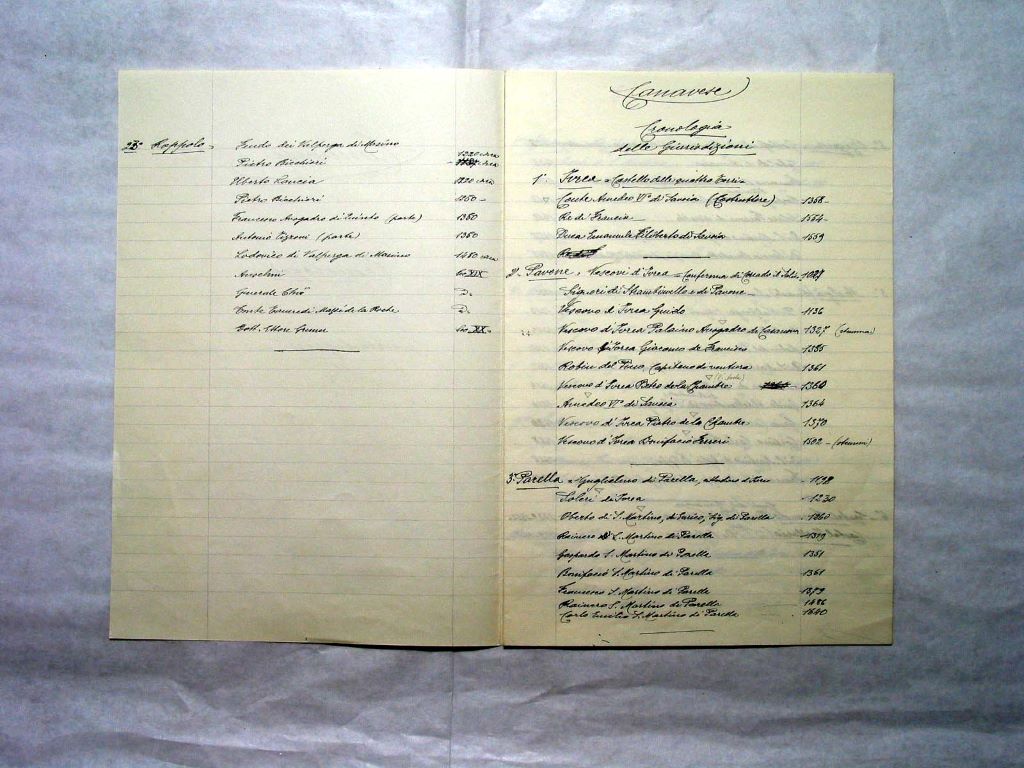 23° Roppolo = Feudo dei Valperga di Masino
Pietro Bicchieri 1220 circa
Uberto Lancia 1220 circa
Pietro Bicchieri 1250 -
Francesco Avogadro di Quinto (parte) 1360
Antonio Tizzoni (parte) 1360
Lodovico di Valperga di Masino 1480 circa
Anselmi Sec XIX
Generale Chiò D.
Conte di Masse de la Roche D.
Dott. Ettore Sec XX
Canavese
Cronologia
delle Giurisdizioni
1° Ivrea = Castello delle quattro Torri =
Conte Amedeo VI° di Savoia (Costruttore) 1358 -
Re di Francia 1554 -
Duca Emanuele Filiberto di Savoia 1559
2° Pavone = Vescovi d'Ivrea = Conferma di Corrado il Salico
Signori di Strambinello e di Pavone
Vescovo d'Ivrea Guido 1136
Vescovo d'Ivrea Palaino Avogadro de Casanova 1327
Vescovo d'Ivrea Giacomo de
Robin del Pino, Capitano di ventura 1361
Vescovo d'Ivrea Pietro de la Chambre 1360
Amedeo VI° di Savoia 1364
Vescovo d'Ivrea Pietro de la Chambre 1370
Vescovo d'Ivrea Bonifacio Ferreri 1502 -
3° Parella = Guglielmo di Parella, - 1198
Soleri di Ivrea - 1230
Oberto di S. Martino, di Enrico, Sig. di Parella - 1260
Rainero di S. Martino di Parella 1319
Gaspardo S. Martino di Parella 1351
Bonifacio S. Martino di Parella 1361
Francesco S. Martino di Parella 1379
Rainero S. Martino di Parella 1486
Carlo Emilio S. Martino di Parella 1640